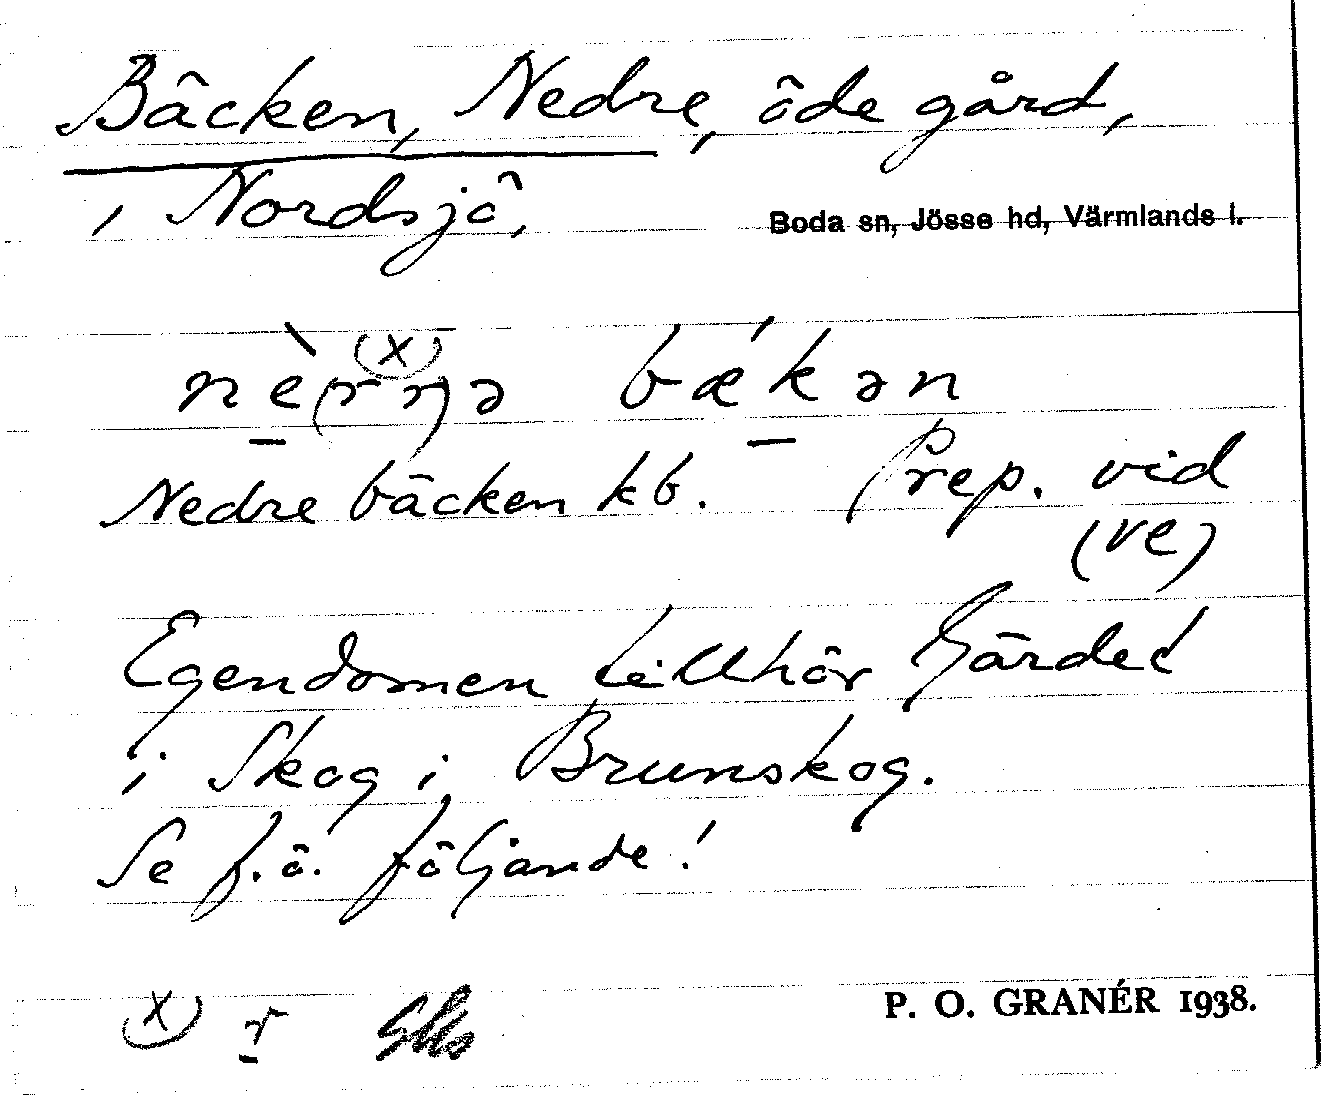 Bäcken, Nedre, öde gård,
i Nordsjö,
Boda sn, Jösse hd, Värmlands l.
(x)
nè(rr)ə bǽkən
Nedre bäcken kb. Prep. vid
(ve)
Egendomen tillhör Gärdet
i Skog i Brunskog.
Se f.ö. följande!
(x) r
P. O. GRANÉR 1938.